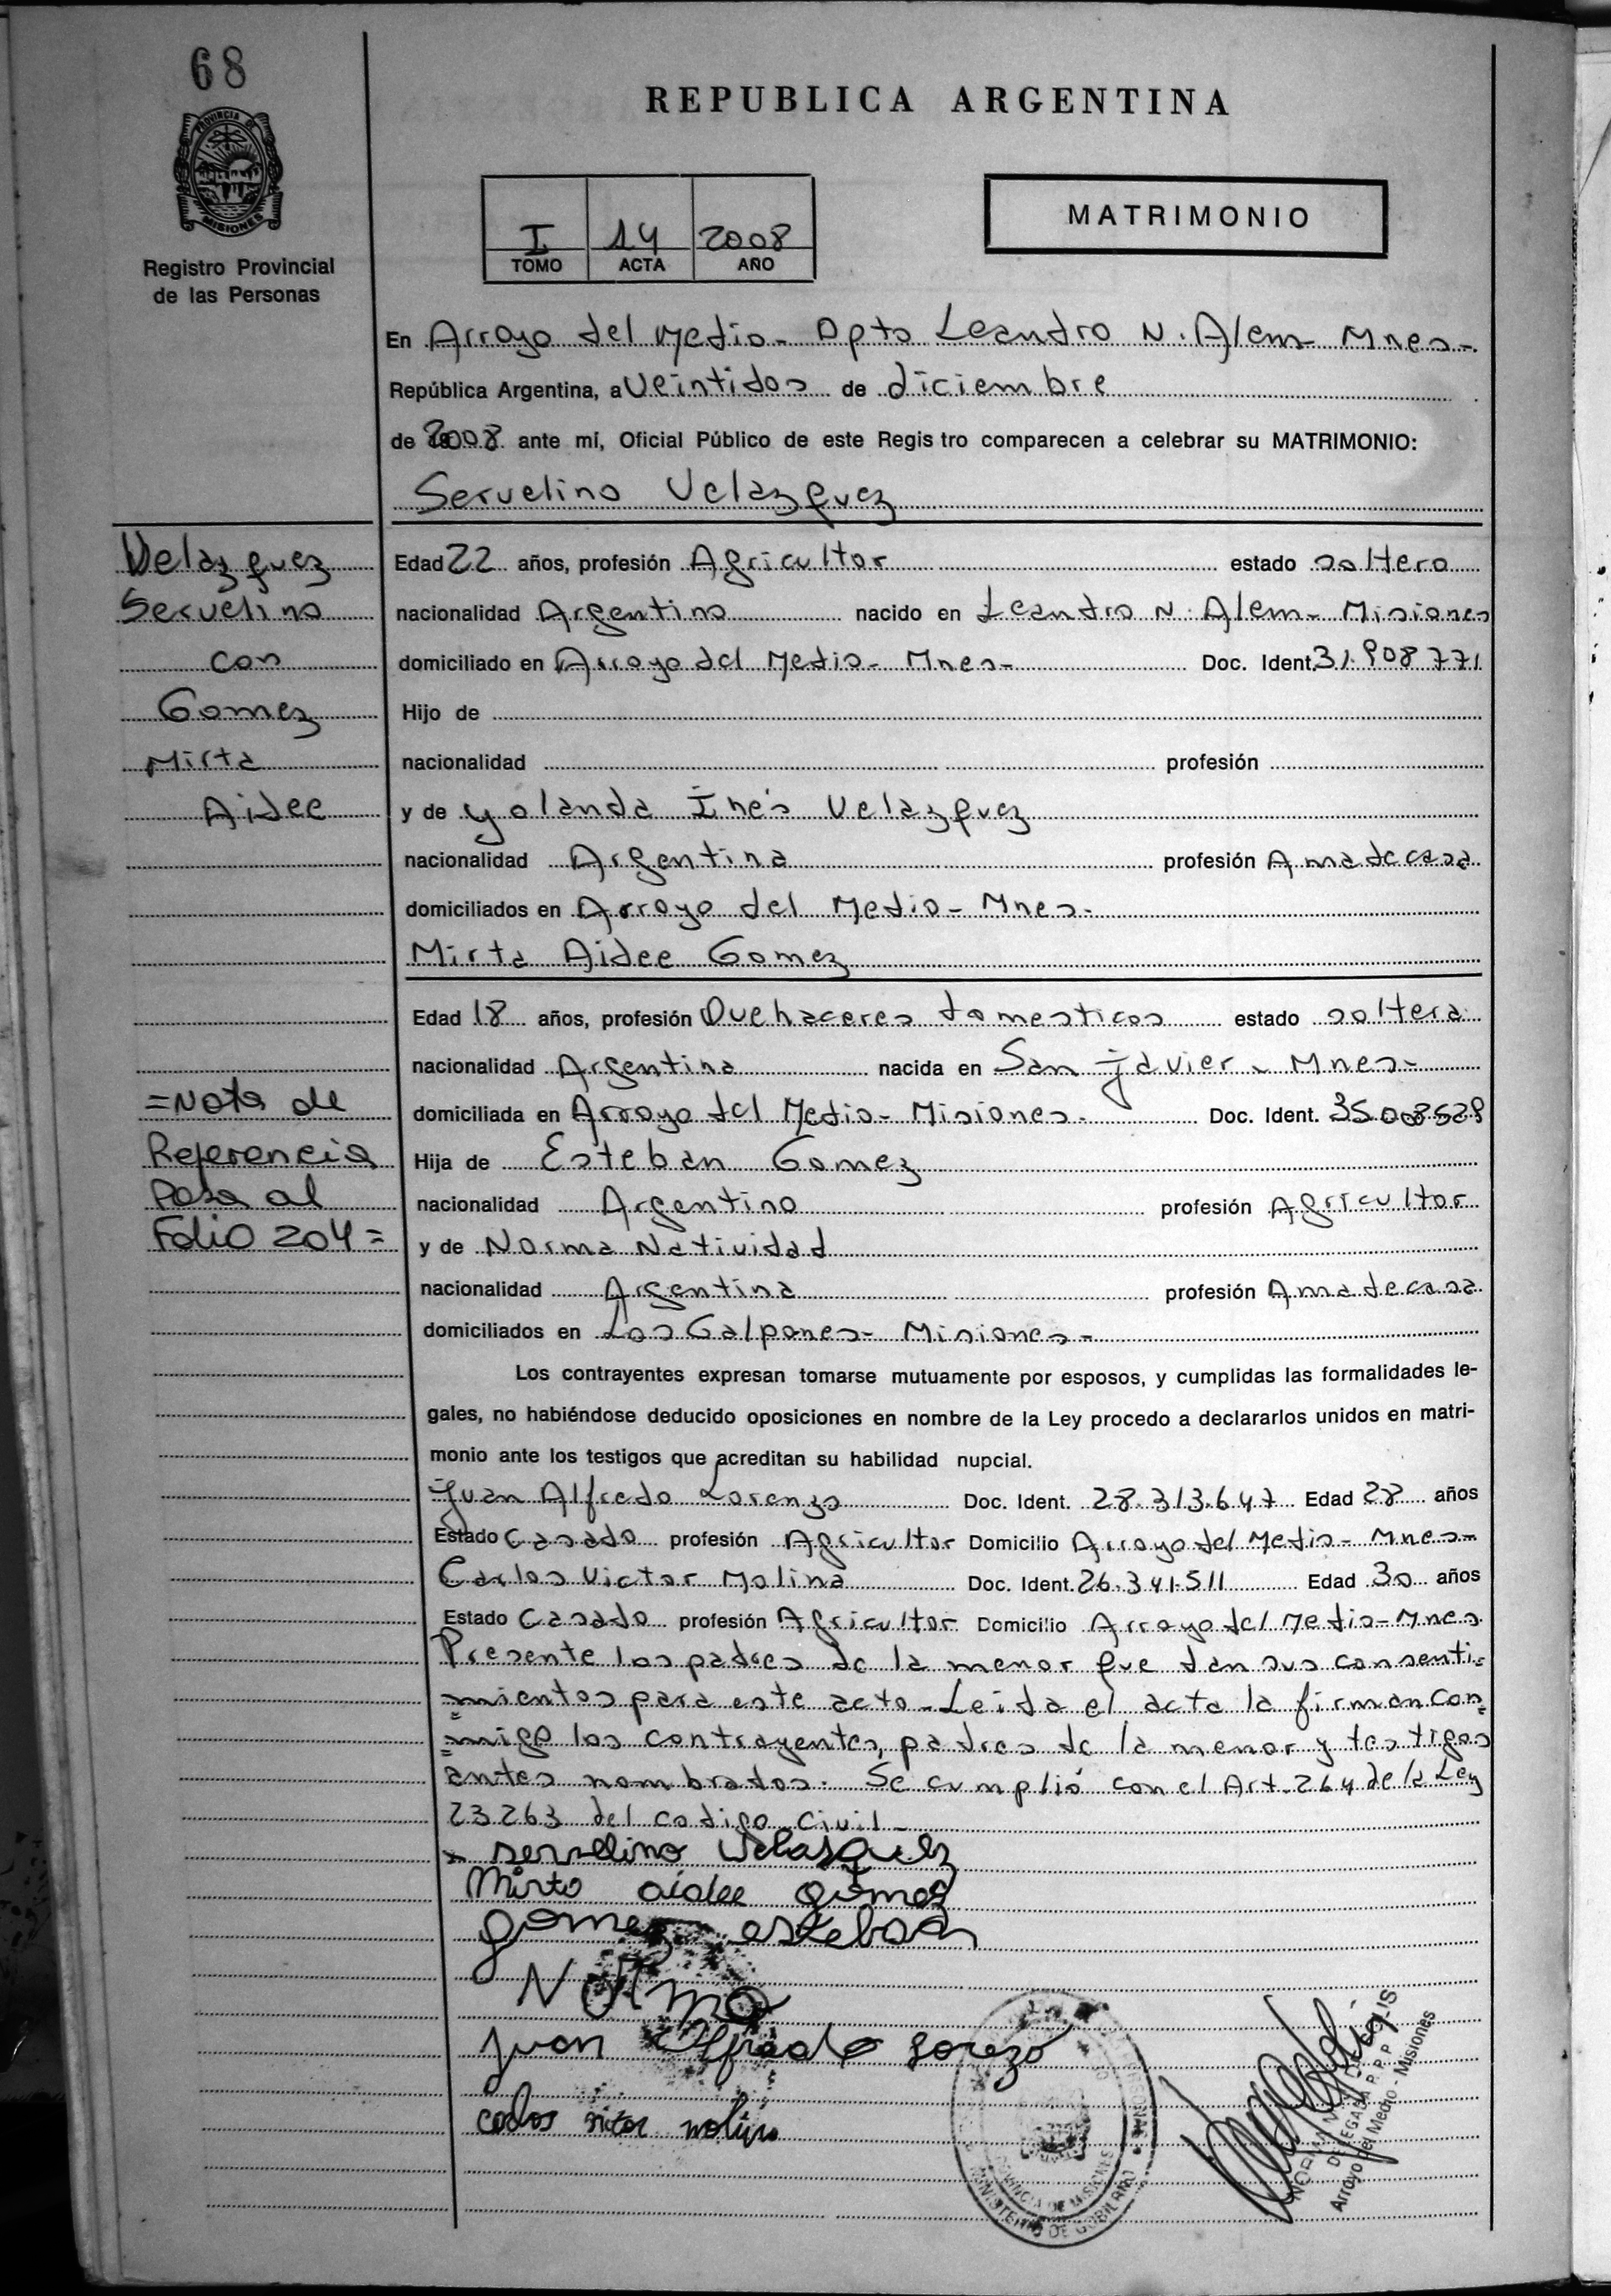 68
REPUBLICA ARGENTINA
PROVINCIA DE MISIONES
Registro Provincial
de las Personas
I 14 2008
TOMO ACTA AÑO
MATRIMONIO
En Arroyo del Medio- Dpto Leandro N. Alem- Mnes-
República Argentina, a Veintidos de diciembre
de 2008 ante mi, Oficial Público de este Regis tro comparecen a celebrar su MATRIMONIO:
Servelino Velazquez
Velazquez
Servelino
con
Gomez
Mirta
Aidee
Edad 22 años, profesión Agricultor estado soltero
nacionalidad Argentino nacido en Leandro N. Alem- Misiones
domiciliado en Arroyo del Medio- Mnes- Doc. Ident. 31.908771
Hijo de
nacionalidad profesión
y de yolanda Inés Velazquez
nacionalidad Argentina profesión Ama de casa
domiciliados en Arroyo del Medio- Mnes-
Mirta Aidee Gomez
Edad 18 años, profesión Quehaceres domesticos estado soltera
nacionalidad Argentina nacida en San Javier - Mnes-
domiciliada en Arroyo del Medio- Misiones- Doc. Ident.
=Nota de
Referencia
Pasa al
Folio 204=
Hija de Esteban Gomez
nacionalidad Argentino profesión Agricultor
y de Norma Natividad
nacionalidad Argentina profesión Ama de casa
domiciliados en Los Galpones- Misiones-
Los contrayentes expresan tomarse mutuamente por esposos, y cumplidas las formalidades le-
gales, no habiéndose deducido oposiciones en nombre de la Ley procedo a declararlos unidos en matri-
monio ante los testigos que acreditan su habilidad nupcial.
Juan Alfredo Lorenzo Doc. Ident. 28.313.647 Edad 28 años
Estado Casado profesión Agricultor Domicilio Arroyo del Medio- Mnes-
Carlos Victor Molina Doc. Ident. 26.341.511 Edad 30 años
Estado Casado profesión Agricultor Domicilio Arroyo del Medio-Mnes
Presente los padres de la menor que dan sus consenti=
=mientos para este acto-Leida el acta la firman con=
=migo los contrayentes, padres de la menor y testigos
antes nombrados. Se cumplió con el Art.264 de la Ley
23263 del codigo civil-
x servelino Velasquez
Mirta aidee gomez
gomez esteban
Norma
Juan Alfredo Lorezo
carlos victor molina
PROVINCIA DE MISIONES
MINISTERIO DE GOBIERNO
DELEGADA R.P.P.
Arroyo del Medio - Misiones